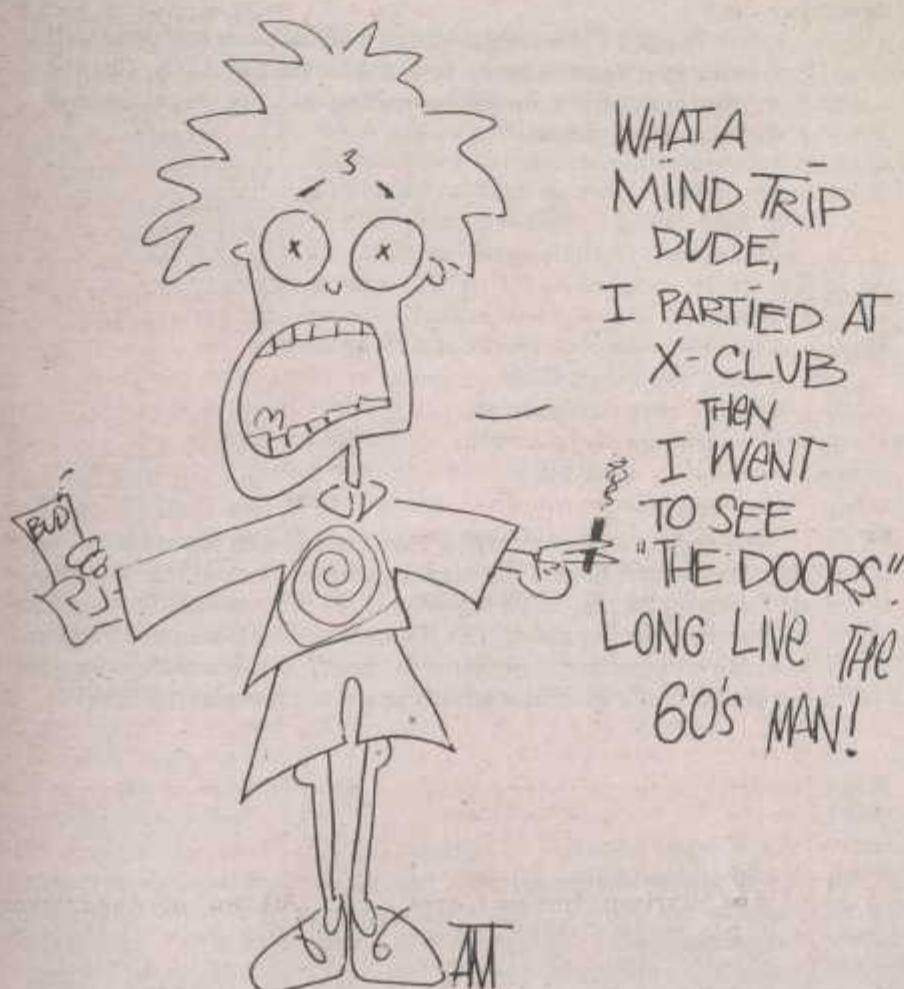 WHAT A
MIND TRIP
DUDE,
I PARTIED AT
X-CLUB
THEN
I WENT
TO SEE
"THE DOORS".
LONG LIVE THE
60'S MAN!
BUD
AM